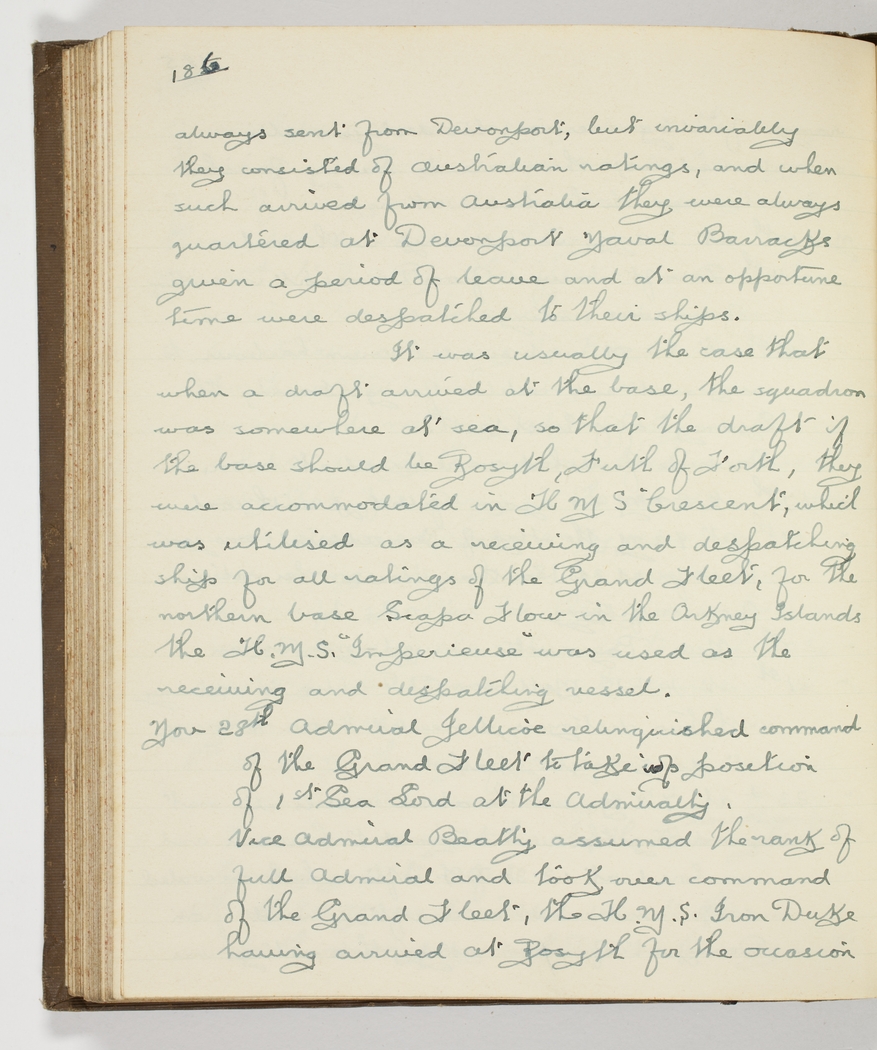 186
always sent from Devonport, but invariably
they consisted of Australian ratings, and when
such arrived from Australia they were always
quartered at Devonport Naval Barracks
given a period of leave and at an opportune
time were despatched to their ships.
It was usually the case that
when a draft arrived at the base, the squadron
was somewhere at sea, so that the draft if
the base should be Rosyth, Firth of Forth, they
were accommodated in H M S "Crescent", which
was utilised as a receiving and despatching
ship for all ratings of the Grand Fleet, for the
northern base Scapa Flow in the Orkney Islands
the H.M.S. "Imperieuse" was used as the
receiving and despatching vessel.
Nov 28th Admiral Jellicoe relinquished command
of the Grand Fleet to take up posetion
of 1st Sea Lord at the Admiralty.
Vice Admiral Beatty assumed the rank of
full Admiral and took over command
of the Grand Fleet, the H.M.S. Iron Duke
having arrived at Rosyth for the occasion